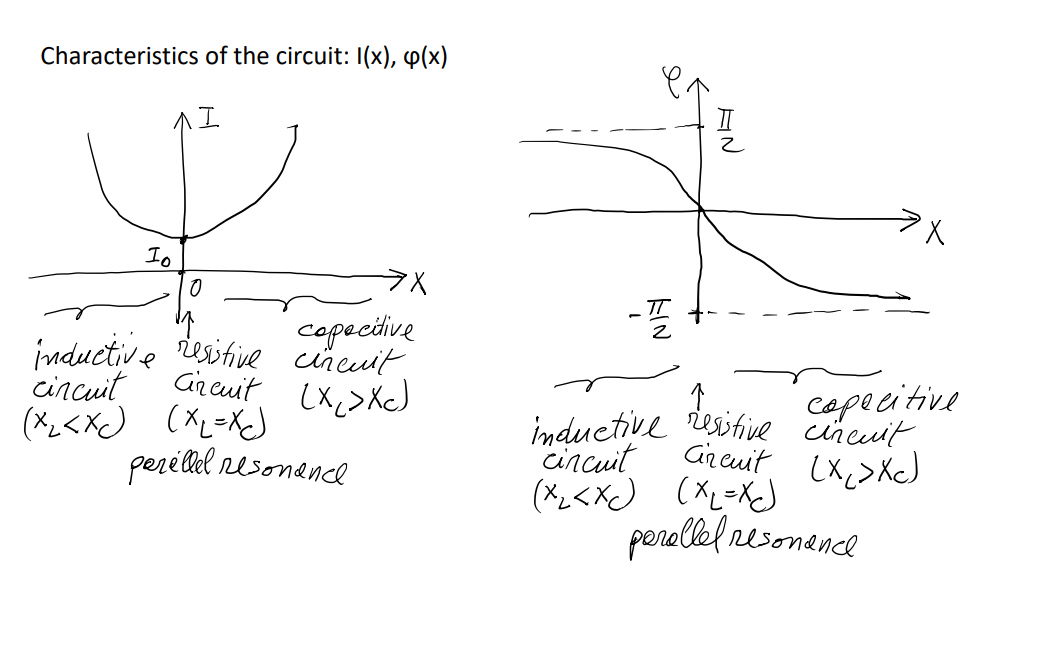 Characteristics of the circuit: I(x), φ(x)
I
I₀
0
X
inductive circuit (X_L<X_C)
resistive circuit (X_L=X_C)
capacitive circuit (X_L>X_C)
parallel resonance
φ
π/2
X
-π/2
inductive circuit (X_L<X_C)
resistive circuit (X_L=X_C)
capacitive circuit (X_L>X_C)
parallel resonance